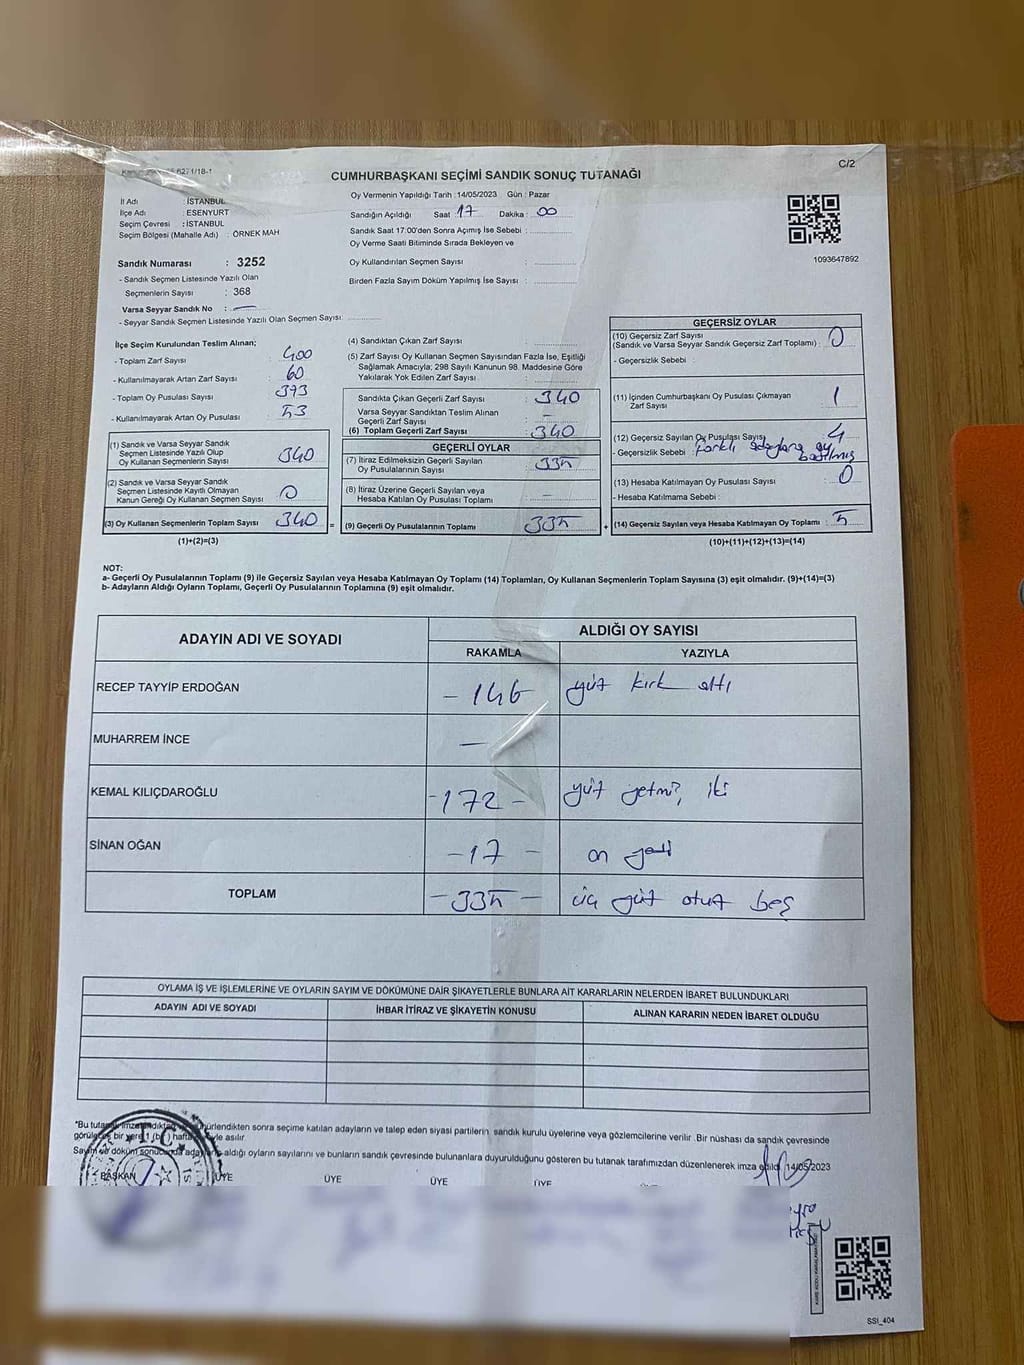 6271/18-1
C/2
CUMHURBAŞKANI SEÇİMİ SANDIK SONUÇ TUTANAĞI
İl Adı : İSTANBUL
İlçe Adı : ESENYURT
Seçim Çevresi : İSTANBUL
Seçim Bölgesi (Mahalle Adı) : ÖRNEK MAH
Oy Vermenin Yapıldığı Tarih :14/05/2023 Gün : Pazar
Sandığın Açıldığı Saat : 17 Dakika : 00
Sandık Saat 17:00'den Sonra Açımış İse Sebebi :
Oy Verme Saati Bitiminde Sırada Bekleyen ve
Oy Kullandırılan Seçmen Sayısı :
Birden Fazla Sayım Döküm Yapılmış İse Sayısı :
1093647892
Sandık Numarası : 3252
- Sandık Seçmen Listesinde Yazılı Olan
Seçmenlerin Sayısı : 368
Varsa Seyyar Sandık No : —
- Seyyar Sandık Seçmen Listesinde Yazılı Olan Seçmen Sayısı:
İlçe Seçim Kurulundan Teslim Alınan;
- Toplam Zarf Sayısı : 400
- Kullanılmayarak Artan Zarf Sayısı : 60
- Toplam Oy Pusulası Sayısı : 393
- Kullanılmayarak Artan Oy Pusulası : 53
(1) Sandık ve Varsa Seyyar Sandık
Seçmen Listesinde Yazılı Olup
Oy Kullanan Seçmenlerin Sayısı : 340
(2) Sandık ve Varsa Seyyar Sandık
Seçmen Listesinde Kayıtlı Olmayan
Kanun Gereği Oy Kullanan Seçmen Sayısı : 0
(3) Oy Kullanan Seçmenlerin Toplam Sayısı : 340
(1)+(2)=(3)
=
(4) Sandıktan Çıkan Zarf Sayısı :
(5) Zarf Sayısı Oy Kullanan Seçmen Sayısından Fazla İse, Eşitliği
Sağlamak Amacıyla; 298 Sayılı Kanunun 98. Maddesine Göre
Yakılarak Yok Edilen Zarf Sayısı :
Sandıkta Çıkan Geçerli Zarf Sayısı : 340
Varsa Seyyar Sandıktan Teslim Alınan
Geçerli Zarf Sayısı : —
(6) Toplam Geçerli Zarf Sayısı : 340
GEÇERLİ OYLAR
(7) İtiraz Edilmeksizin Geçerli Sayılan
Oy Pusulalarının Sayısı : 335
(8) İtiraz Üzerine Geçerli Sayılan veya
Hesaba Katılan Oy Pusulası Toplamı : —
(9) Geçerli Oy Pusulalarının Toplamı : 335
+
GEÇERSİZ OYLAR
(10) Geçersiz Zarf Sayısı
(Sandık ve Varsa Seyyar Sandık Geçersiz Zarf Toplamı) : 0
- Geçersizlik Sebebi :
(11) İçinden Cumhurbaşkanı Oy Pusulası Çıkmayan
Zarf Sayısı : 1
(12) Geçersiz Sayılan Oy Pusulası Sayısı : 4
- Geçersizlik Sebebi : Farklı adaylara oy
basılmış
(13) Hesaba Katılmayan Oy Pusulası Sayısı : 0
- Hesaba Katılmama Sebebi :
(14) Geçersiz Sayılan veya Hesaba Katılmayan Oy Toplamı : 5
(10)+(11)+(12)+(13)=(14)
NOT:
a- Geçerli Oy Pusulalarının Toplamı (9) ile Geçersiz Sayılan veya Hesaba Katılmayan Oy Toplamı (14) Toplamları, Oy Kullanan Seçmenlerin Toplam Sayısına (3) eşit olmalıdır. (9)+(14)=(3)
b- Adayların Aldığı Oyların Toplamı, Geçerli Oy Pusulalarının Toplamına (9) eşit olmalıdır.
ADAYIN ADI VE SOYADI
ALDIĞI OY SAYISI
RAKAMLA YAZIYLA
RECEP TAYYİP ERDOĞAN - 146 yüz kırk altı
MUHARREM İNCE —
KEMAL KILIÇDAROĞLU - 172 - yüz yetmiş iki
SİNAN OĞAN - 17 - on yedi
TOPLAM - 335 - üç yüz otuz beş
OYLAMA İŞ VE İŞLEMLERİNE VE OYLARIN SAYIM VE DÖKÜMÜNE DAİR ŞİKAYETLERLE BUNLARA AİT KARARLARIN NELERDEN İBARET BULUNDUKLARI
ADAYIN ADI VE SOYADI İHBAR İTİRAZ VE ŞİKAYETİN KONUSU ALINAN KARARIN NEDEN İBARET OLDUĞU
*Bu sonra seçime katılan adayların ve talep eden siyasi partilerin sandık kurulu üyelerine veya gözlemcilerine verilir .Bir nüshası da sandık çevresinde
bir yere 1 (bir) hafta asılır.
aldığı oyların sayılarını ve bunların sandık çevresinde bulunanlara duyurulduğunu gösteren bu tutanak tarafımızdan düzenlenerek imza edildi. 14/05/2023
T.C.
BAŞKAN ÜYE ÜYE ÜYE ÜYE
SSI_404